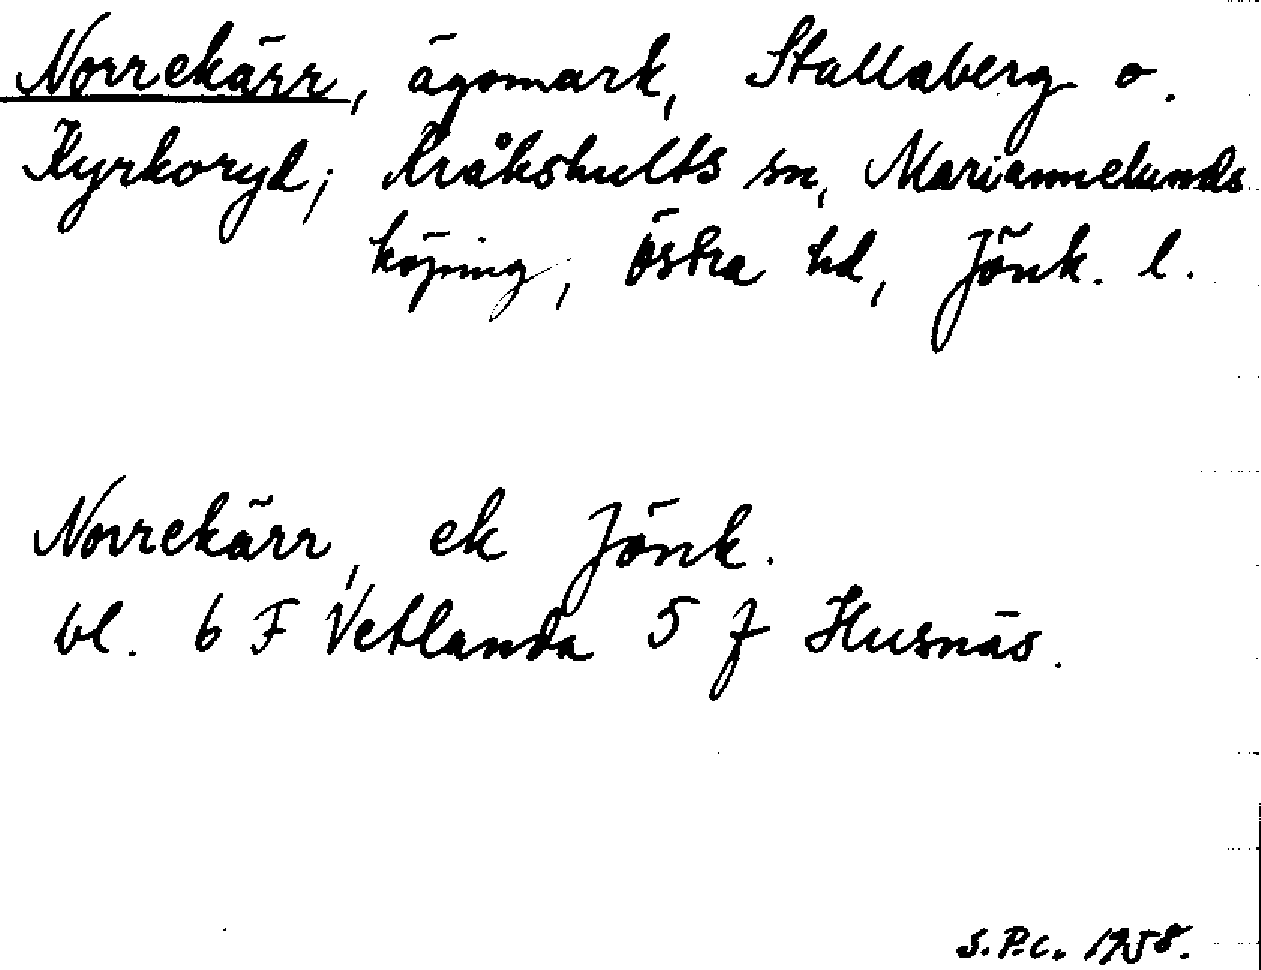 Norrekärr, ägomark, Stallaberg o.
Kyrkoryd; Kråkshults sn, Mariannelunds
köping, Östra hd, Jönk. l.
Norrekärr, ek Jönk.
bl. 6 F Vetlanda 5 f Husnäs.
S.P.C. 1958.